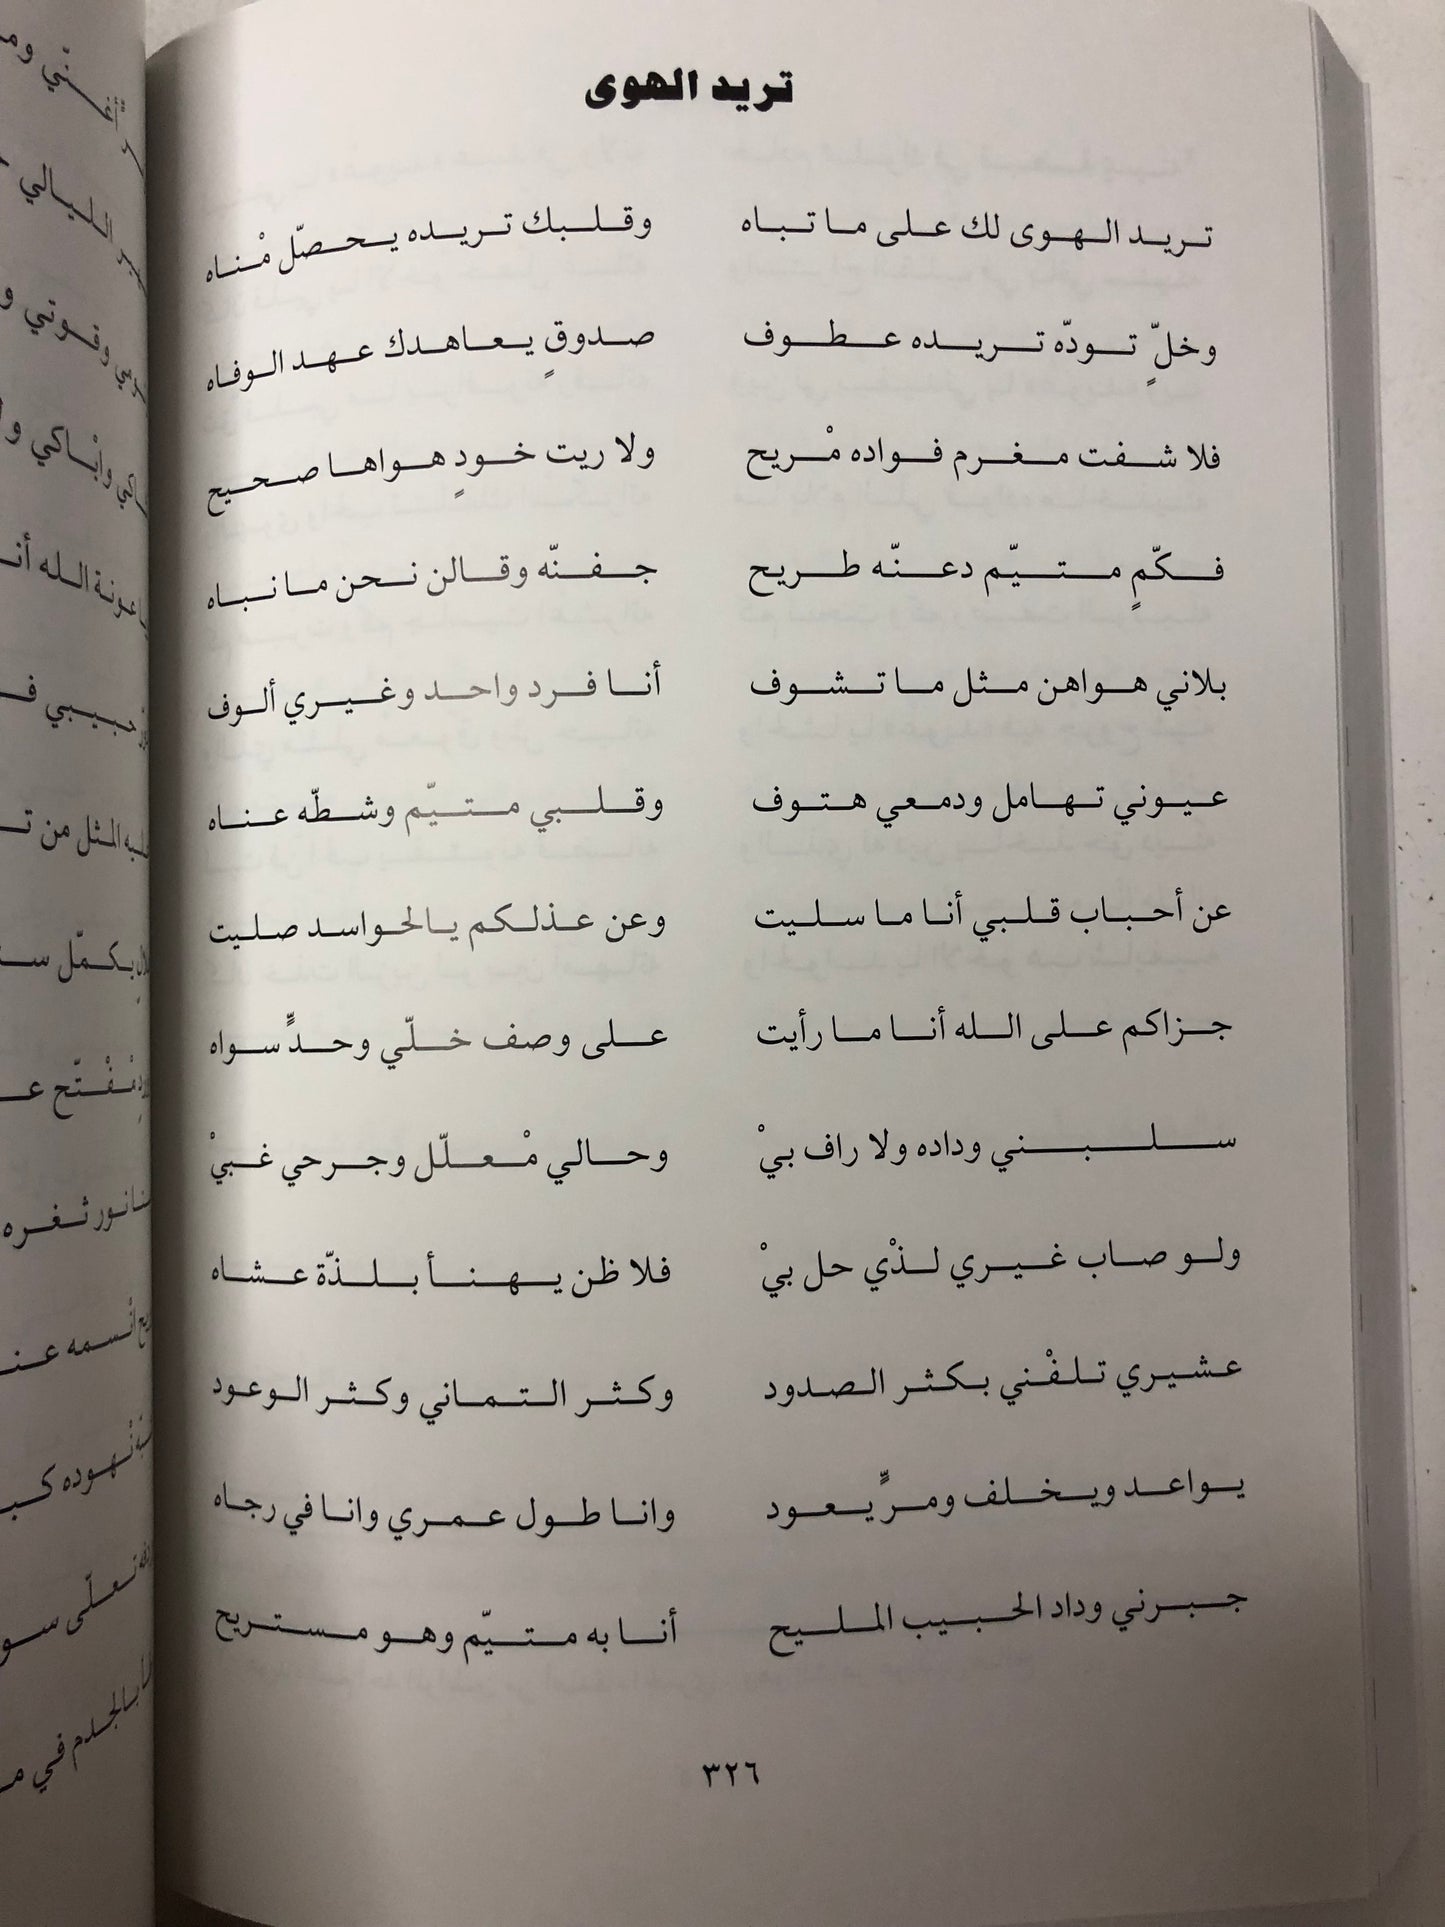 تريد الهوى
تريد الهوى لك على ما تباه وقلبك تريده يحصّل مْناه
وخلٍّ تودّه تريده عطوف صدوقٍ يعاهدك عهد الوفاه
فلا شفت مغرم فواده مْريح ولا ريت خودٍ هواها صحيح
فكّمٍ متيّم دعنّه طريح جفنّه وقالن نحن ما نباه
بلاني هواهن مثل ما تشوف أنا فرد واحد وغيري ألوف
عيوني تهامل ودمعي هتوف وقلبي متيّم وشطّه عناه
عن أحباب قلبي أنا ما سليت وعن عذلكم يالحواسد صليت
جزاكم على الله أنا ما رأيت على وصف خلّي وحدٍّ سواه
سلبني وداده ولا راف بيْ وحالي مْعلّل وجرحي غبيْ
ولو صاب غيري لذْي حل بيْ فلا ظن يهنأ بلذّة عشاه
عشيري تلفْني بكثر الصدود وكثر التماني وكثر الوعود
يواعد ويخلف ومرٍّ يعود وانا طول عمري وانا في رجاه
جبرني وداد الحبيب المليح أنا به متيّم وهو مستريح
٣٢٦